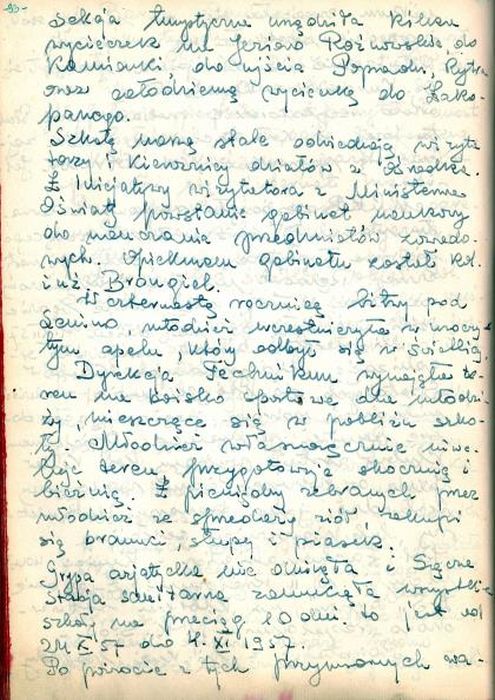 -93-
Sekcja turystyczna urządziła kilka
wycieczek na Jezioro Rożnowskie, do
Kamianki, do ujścia Popradu, Rytra
oraz całodzienną wycieczkę do Zako-
panego.
Szkołę naszą stale odwiedzają wizyta
torzy i kierownicy działów z Ośrodka.
Z Inicjatywy wizytatora z Ministerstwa
Oświaty powstanie gabinet naukowy
do nauczania przedmiotów zawodo-
wych. Opiekunem gabinetu został kol.
inż. Brongiel.
W czternastą rocznicę bitwy pod
Lenino, młodzież uczestniczyła w uroczy-
tym apelu, który odbył się w świetlicy.
Dyrekcja Technikum wynajęła te-
ren na boisko sportowe dla młodzie
ży, mieszczące się w pobliżu szko-
ły. Młodzież własnoręcznie niwe-
luje teren przygotowuje skocznię i
bieżnię. Z pieniędzy zebranych przez
młodzież ze sprzedaży ziół zakupi
się bramki, słupy i piasek.
Grypa azjatycka nie ominęła i Sącza
Stacja sanitarna zamknęła wszystkie
szkoły na przeciąg 10 dni. to jest od
24 X 57 do 4. XI 1957.
Po powrocie z tych przymusowych wa-